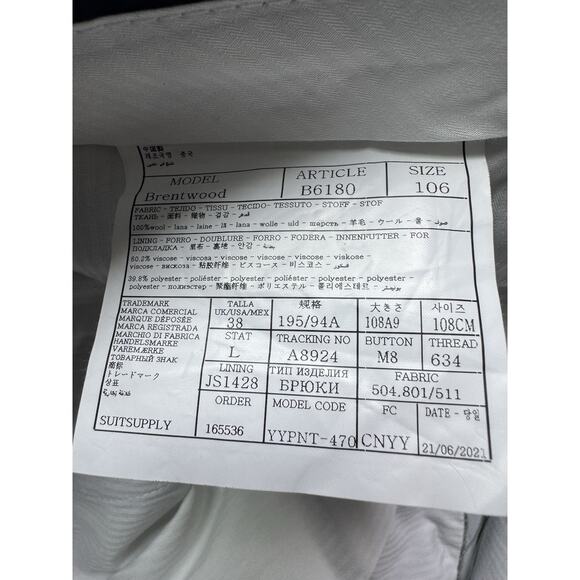 中国製
제조국명 중국
MODEL ARTICLE SIZE
Brentwood B6180 106
FABRIC - TEJIDO - TISSU - TECIDO - TESSUTO - STOFF - STOF
ТКАНЬ - 面料 - 織物 - 겉감 - قماش
100%wool - lana - laine - lã - lana - wolle - uld - шерсть - 羊毛 - ウール - 울 - صوف
LINING - FORRO - DOUBLURE - FORRO - FODERA - INNENFUTTER - FOR
ПОДКЛАДКА - 里布 - 裏地 - 안감 - بطانة
60.2% viscose - viscosa - viscose - viscose - viscosa - viskose -
viscose - вискоза - 粘胶纤维 - ビスコース - 비스코스 -
39.8% polyester - poliéster - polyester - poliéster - poliestere - polyester -
polyester - полиэстер - 聚酯纤维 - ポリエステル - 폴리에스테르 - بوليستر
TRADEMARK
MARCA COMERCIAL
MARQUE DÉPOSÉE
MARCA REGISTRADA
MARCHIO DI FABRICA
HANDELSMARKE
VAREMÆRKE
ТОВАРНЫЙ ЗНАК
商标
トレードマーク
상표
علامة تجارية
SUITSUPPLY
TALLA 规格 大きさ 사이즈
UK/USA/MEX
38 195/94A 108A9 108CM
STAT TRACKING NO BUTTON THREAD
L A8924 M8 634
LINING ТИП ИЗДЕЛИЯ FABRIC
JS1428 БРЮКИ 504.801/511
ORDER MODEL CODE FC DATE - 당일
165536 YYPNT-470 CNYY 21/06/2021